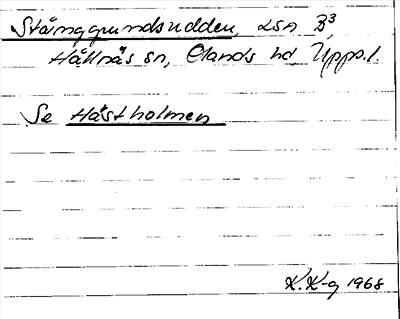 Stånggrundsudden, LSA B³,
Hållnäs sn, Olands hd Upps. l.
Se Hästholmen
K. K-g 1968